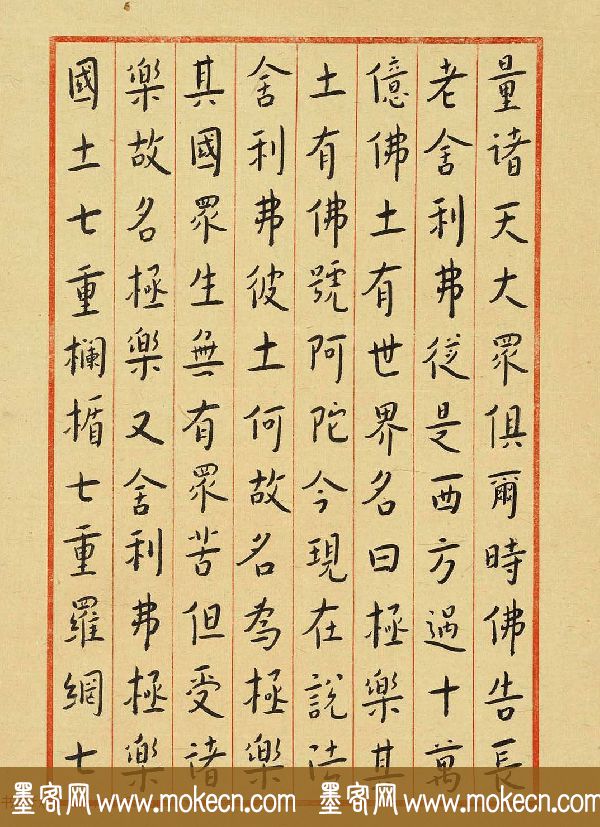 量诸天大眾俱爾時佛告長
老舍利弗從是西方過十萬
億佛土有世界名曰極樂其
土有佛號阿陀今現在說法
舍利弗彼土何故名為極樂
其國眾生無有眾苦但受诸
樂故名極樂又舍利弗極樂
國土七重欄楯七重羅網七
墨客网 www.mokecn.com 墨客网 www.mokecn.com